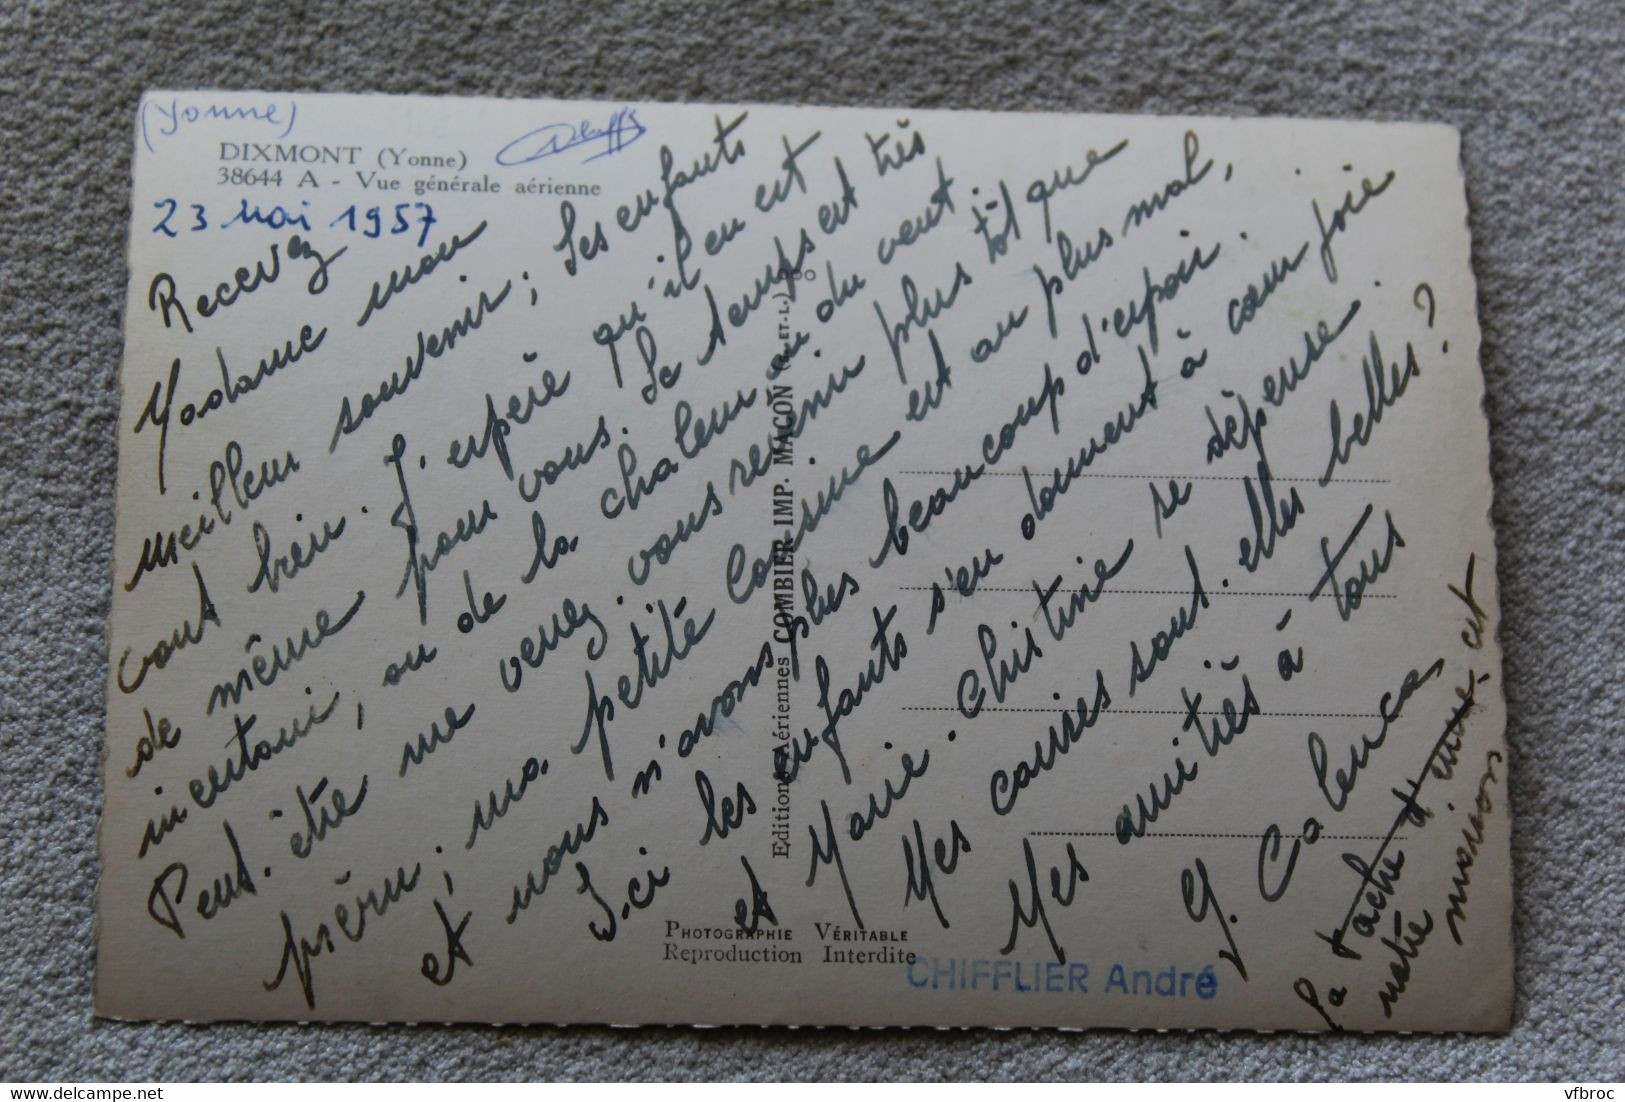 (Yonne)
DIXMONT (Yonne)
38644 A - Vue générale aérienne
23 Mai 1957
Recevez
Madame mon
meilleur souvenir ; les enfants
vont bien. J'espère qu'il en est
de même pour vous. Le temps est très
incertain, ou de la chaleur ou du vent.
Peut-être me verrez-vous revenir plus tôt que
prévu ; ma petite cousine est au plus mal,
et nous n'avons plus beaucoup d'espoir.
Ici les enfants s'en donnent à cœur joie
et Marie-Christine se dépense.
Mes cousines sont-elles belles?
Mes amitiés à tous
G. Calenca
La tache d'encre est
notre maison
Editions Aériennes COMBIER IMP. MACON (S.-ET-L.)
PHOTOGRAPHIE VÉRITABLE
Reproduction Interdite
CHIFFLIER André
vfbroc